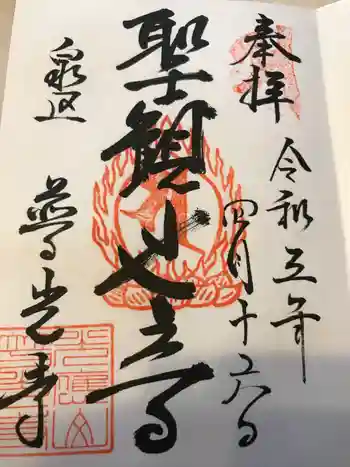 奉拝
令和五年
四月十六日
聖観世音
泉区
普光寺